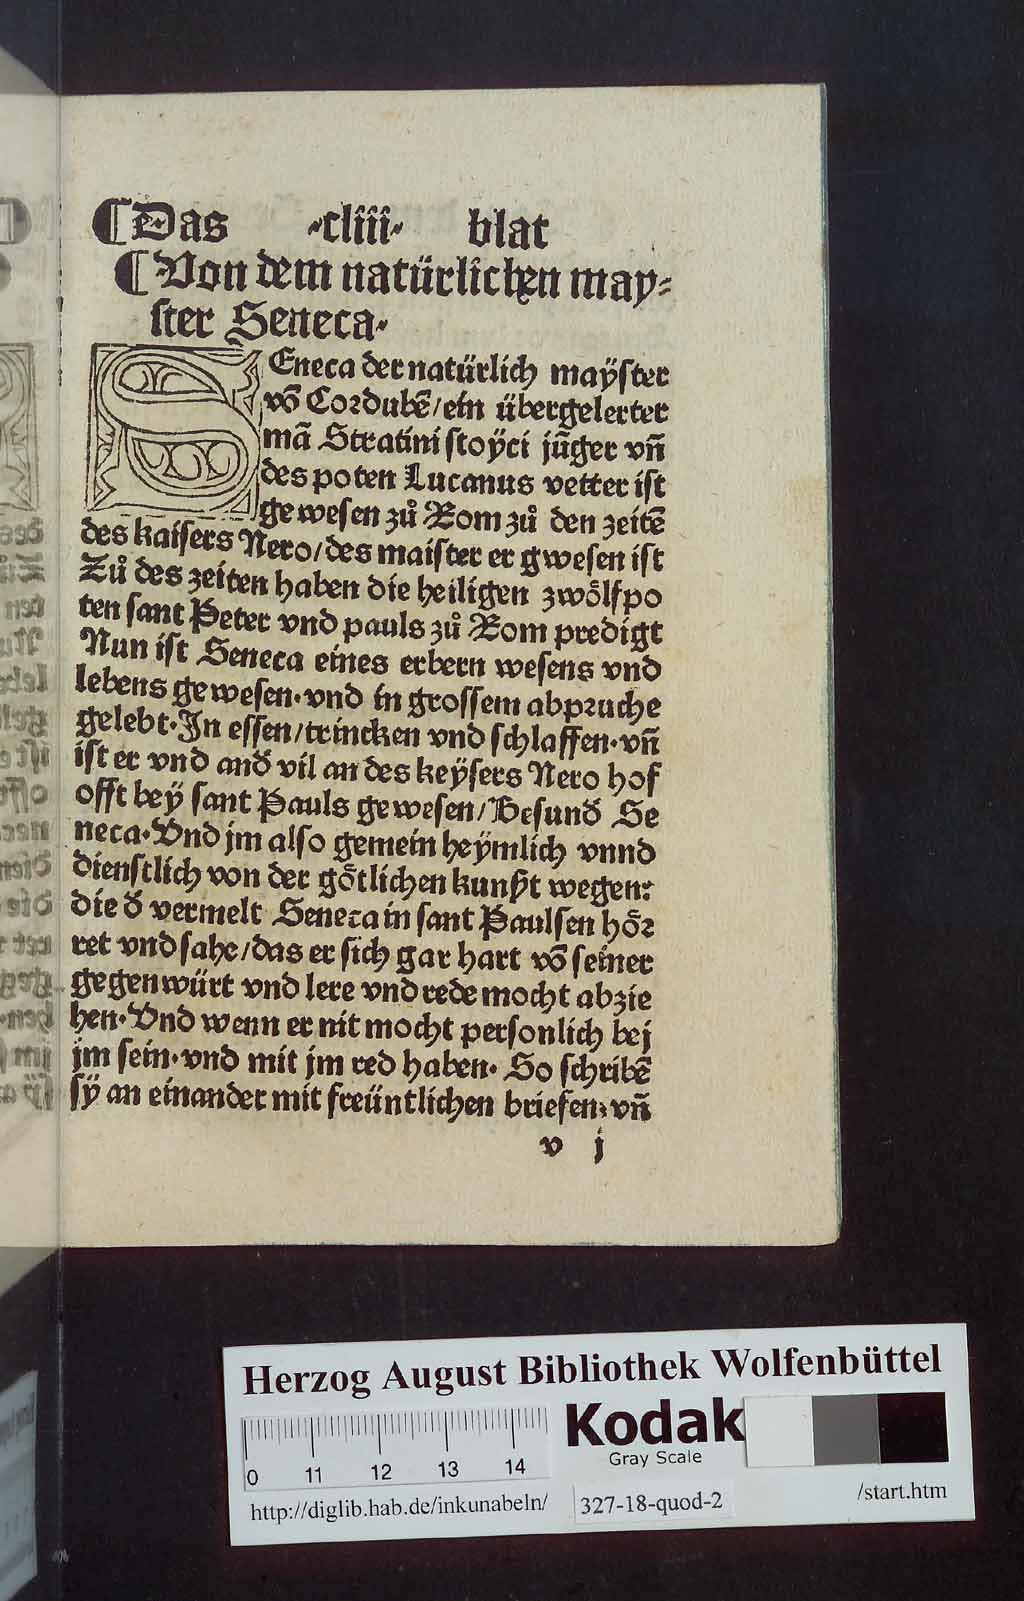 ¶ Das .cliii. blat
¶ Von dem natürlichen may⸗
ster Seneca.
SEneca der natürlich maÿster
võ Cordubẽ/ein übergelerter
mã Stratini stoÿci jũger vñ
des poten Lucanus vetter ist
gewesen zů Rom zů den zeitẽ
des kaisers Nero/des maister er gwesen ist
Zů des zeiten haben die heiligen zwoͤlfpo
ten sant Peter vnd pauls zů Rom predigt
Nun ist Seneca eines erbern wesens vnd
lebens gewesen.vnd in grossem abpruche
gelebt.In essen/trincken vnd schlaffen.vñ
ist er vnd and̃ vil an des keÿsers Nero hof
offt beÿ sant Pauls gewesen/Besund̃ Se
neca.Vnd jm also gemein heÿmlich vnnd
dienstlich von der goͤtlichen kunst wegen:
die d̃ vermelt Seneca in sant Paulsen hoͤr
ret vnd sahe/das er sich gar hart võ seiner
gegenwürt vnd lere vnd rede mocht abzie
hen.Vnd wenn er nit mocht personlich bej
jm sein.vnd mit jm red haben. So schribẽ
sÿ an einander mit freüntlichen briefen: vñ
v j
Herzog August Bibliothek Wolfenbüttel
0 11 12 13 14
Kodak
Gray Scale
http://diglib.hab.de/inkunabeln/ 327-18-quod-2 /start.htm